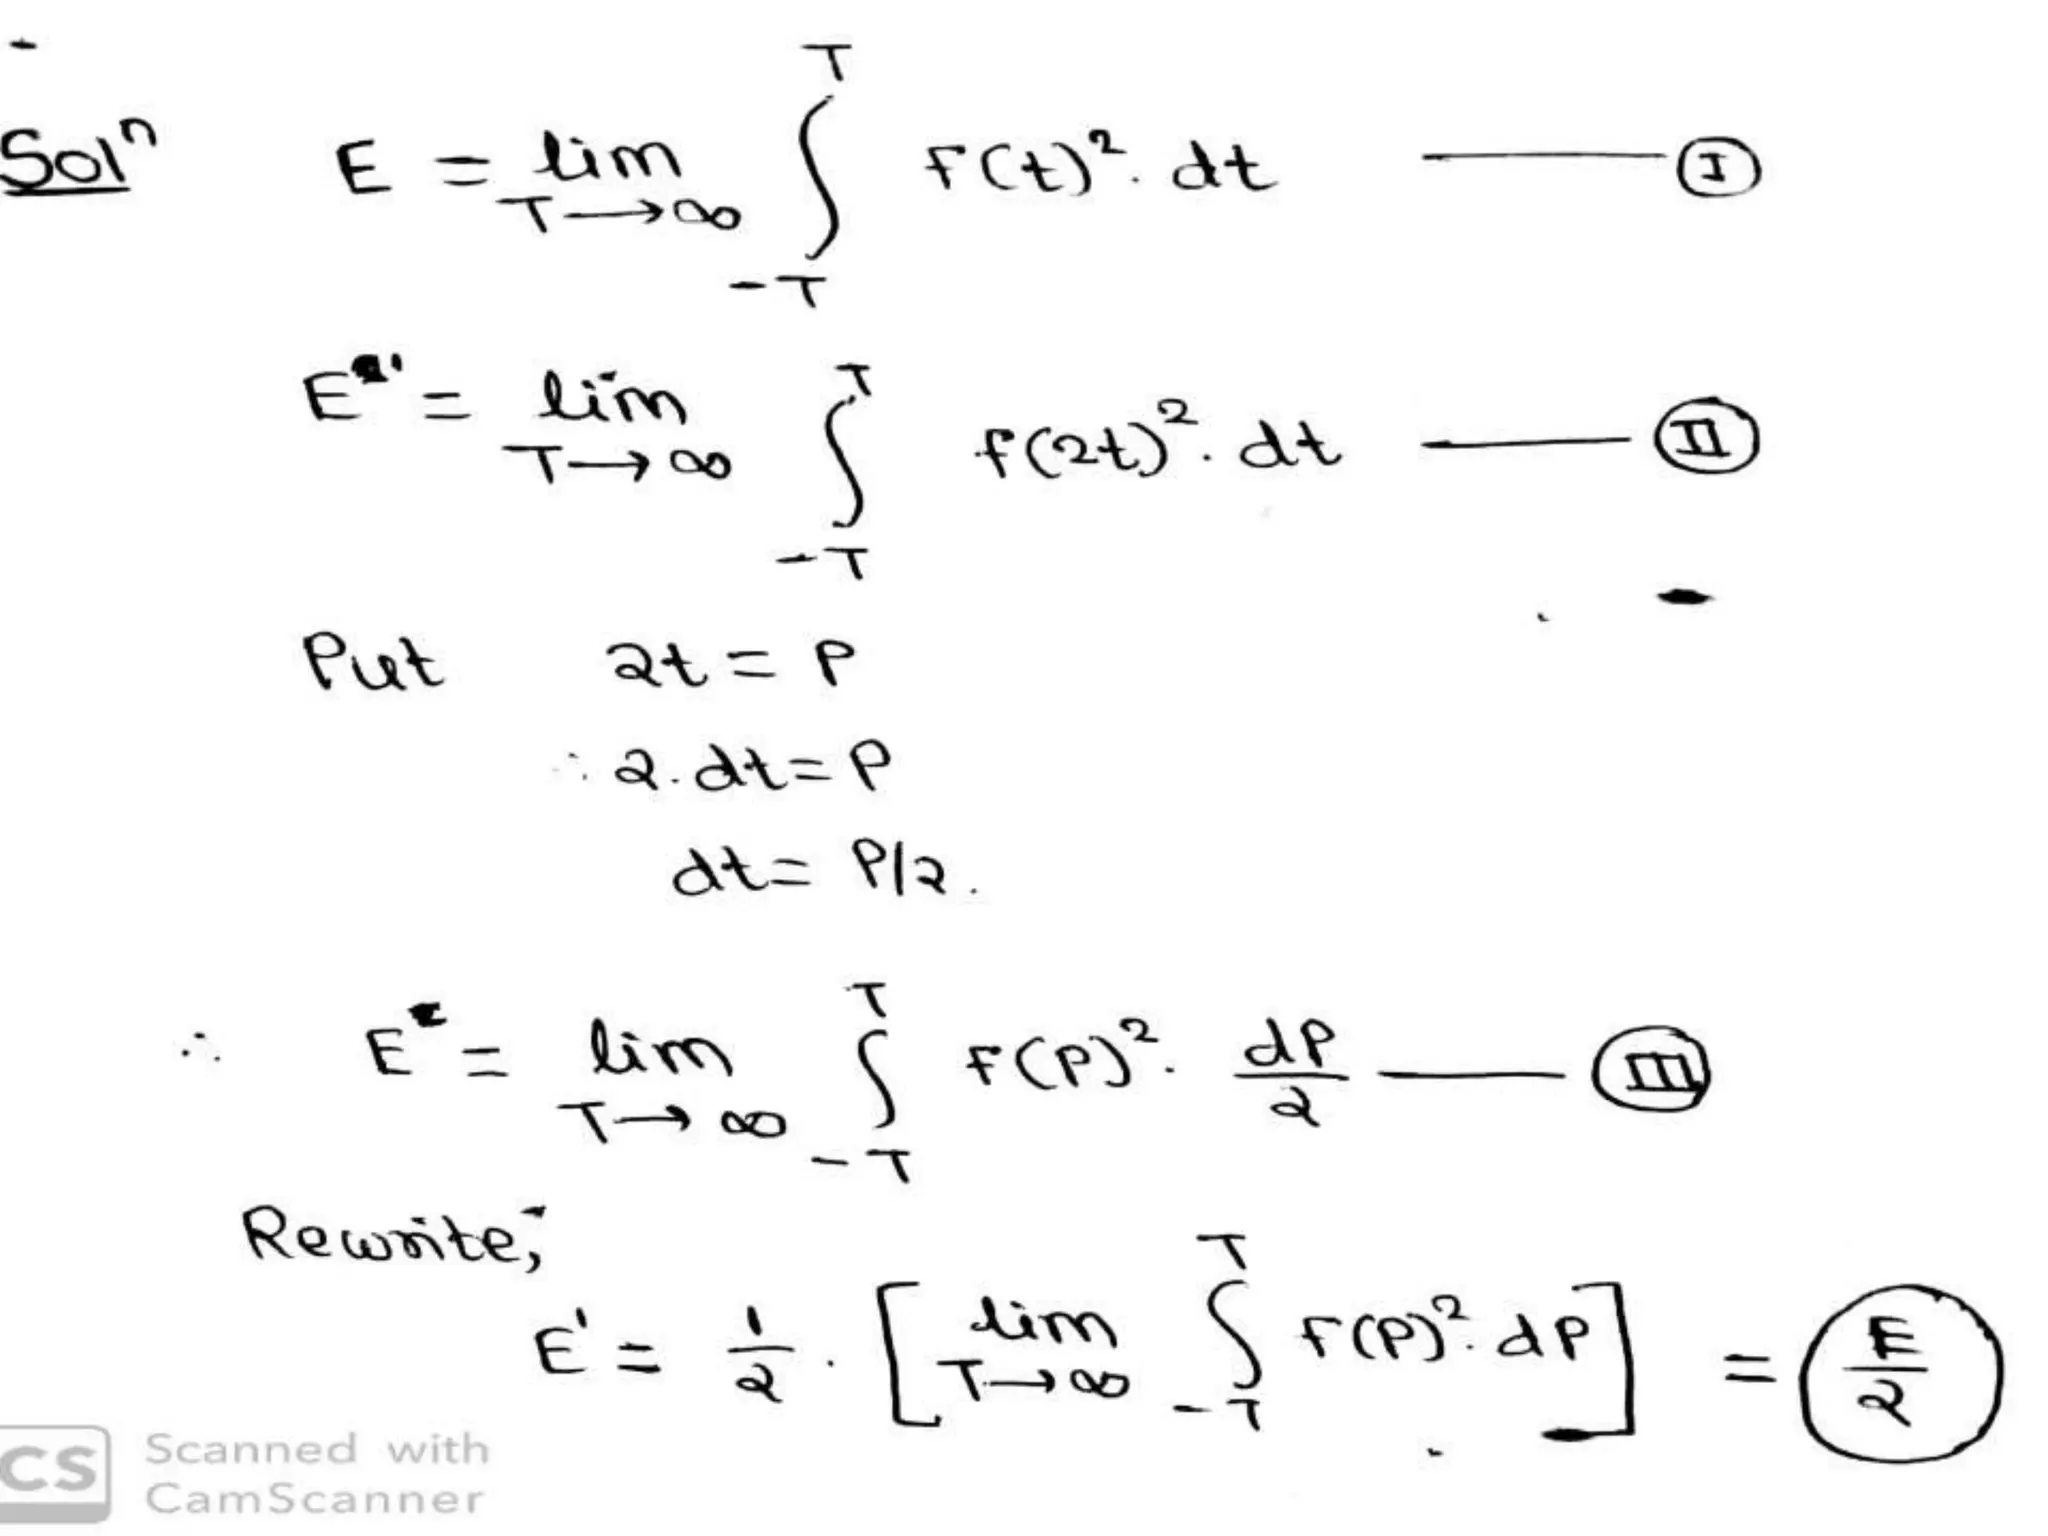 Solⁿ E = lim T→∞ ∫_{-T}^{T} f(t)². dt —— I
E' = lim T→∞ ∫_{-T}^{T} f(2t)². dt —— II
Put 2t = P
∴ 2.dt = P
dt = P/2.
∴ E = lim T→∞ ∫_{-T}^{T} f(P)². dP/2 —— III
Rewrite;
E' = 1/2 . [ lim T→∞ ∫_{-T}^{T} f(P)². dP ] = E/2
CS Scanned with
CamScanner